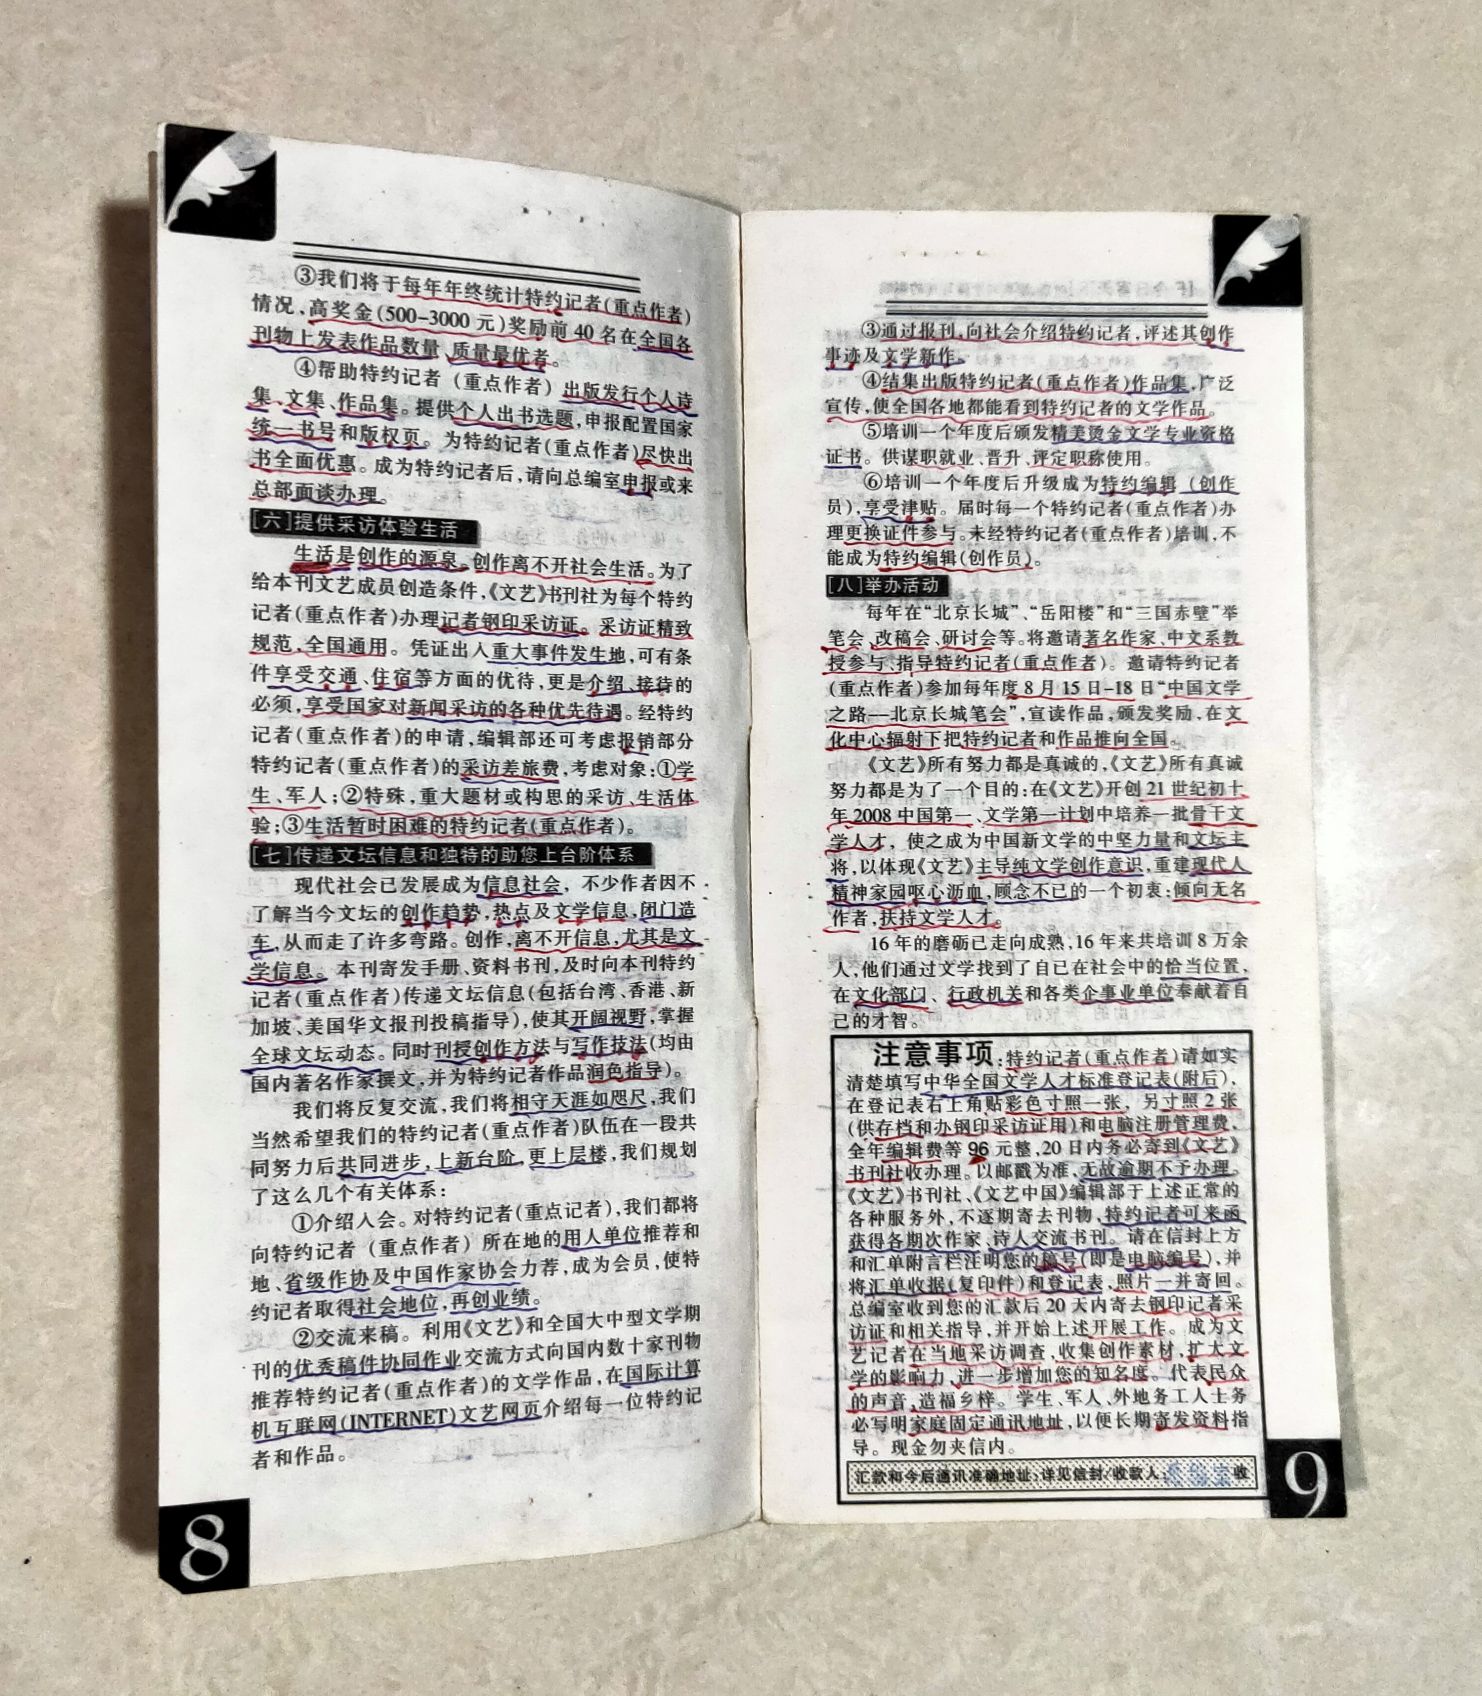 ③我们将于每年年终统计特约记者(重点作者)
情况,高奖金(500-3000 元)奖励前 40 名在全国各
刊物上发表作品数量、质量最优者。
④帮助特约记者（重点作者）出版发行个人诗
集、文集、作品集。提供个人出书选题,申报配置国家
统一书号和版权页。为特约记者(重点作者)尽快出
书全面优惠。成为特约记者后,请向总编室申报或来
总部面谈办理。
[六]提供采访体验生活
生活是创作的源泉,创作离不开社会生活。为了
给本刊文艺成员创造条件,《文艺》书刊社为每个特约
记者(重点作者)办理记者钢印采访证。采访证精致
规范,全国通用。凭证出入重大事件发生地,可有条
件享受交通、住宿等方面的优待,更是介绍、接待的
必须,享受国家对新闻采访的各种优先待遇。经特约
记者(重点作者)的申请,编辑部还可考虑报销部分
特约记者(重点作者)的采访差旅费,考虑对象:①学
生、军人;②特殊,重大题材或构思的采访、生活体
验;③生活暂时困难的特约记者(重点作者)。
[七]传递文坛信息和独特的助您上台阶体系
现代社会已发展成为信息社会，不少作者因不
了解当今文坛的创作趋势,热点及文学信息,闭门造
车,从而走了许多弯路。创作,离不开信息,尤其是文
学信息。本刊寄发手册、资料书刊,及时向本刊特约
记者(重点作者)传递文坛信息(包括台湾、香港、新
加坡、美国华文报刊投稿指导),使其开阔视野,掌握
全球文坛动态。同时刊授创作方法与写作技法(均由
国内著名作家撰文,并为特约记者作品润色指导)。
我们将反复交流,我们将相守天涯如咫尺,我们
当然希望我们的特约记者(重点作者)队伍在一段共
同努力后共同进步,上新台阶,更上层楼,我们规划
了这么几个有关体系:
①介绍入会。对特约记者(重点记者),我们都将
向特约记者（重点作者）所在地的用人单位推荐和
地、省级作协及中国作家协会力荐,成为会员,使特
约记者取得社会地位,再创业绩。
②交流来稿。利用《文艺》和全国大中型文学期
刊的优秀稿件协同作业交流方式向国内数十家刊物
推荐特约记者(重点作者)的文学作品,在国际计算
机互联网(INTERNET)文艺网页介绍每一位特约记
者和作品。
8
③通过报刊,向社会介绍特约记者,评述其创作
事迹及文学新作。
④结集出版特约记者(重点作者)作品集,广泛
宣传,使全国各地都能看到特约记者的文学作品。
⑤培训一个年度后颁发精美烫金文学专业资格
证书。供谋职就业、晋升、评定职称使用。
⑥培训一个年度后升级成为特约编辑（创作
员),享受津贴。届时每一个特约记者(重点作者)办
理更换证件参与。未经特约记者(重点作者)培训,不
能成为特约编辑(创作员)。
[八]举办活动
每年在“北京长城”、“岳阳楼”和“三国赤壁”举
笔会、改稿会、研讨会等。将邀请著名作家、中文系教
授参与、指导特约记者(重点作者)。邀请特约记者
(重点作者)参加每年度 8 月 15 日-18 日“中国文学
之路—北京长城笔会”,宣读作品,颁发奖励,在文
化中心辐射下把特约记者和作品推向全国。
《文艺》所有努力都是真诚的,《文艺》所有真诚
努力都是为了一个目的:在《文艺》开创 21 世纪初十
年 2008 中国第一、文学第一计划中培养一批骨干文
学人才，使之成为中国新文学的中坚力量和文坛主
将,以体现《文艺》主导纯文学创作意识,重建现代人
精神家园呕心沥血,顾念不已的一个初衷:倾向无名
作者,扶持文学人才。
16 年的磨砺已走向成熟,16 年来共培训 8 万余
人,他们通过文学找到了自已在社会中的恰当位置,
在文化部门、行政机关和各类企事业单位奉献着自
己的才智。
注意事项:特约记者(重点作者)请如实
清楚填写中华全国文学人才标准登记表(附后),
在登记表右上角贴彩色寸照一张，另寸照 2 张
(供存档和办钢印采访证用)和电脑注册管理费,
全年编辑费等 96 元整,20 日内务必寄到《文艺》
书刊社收办理。以邮戳为准,无故逾期不予办理。
《文艺》书刊社、《文艺中国》编辑部于上述正常的
各种服务外,不逐期寄去刊物,特约记者可来函
获得各期次作家、诗人交流书刊。请在信封上方
和汇单附言栏注明您的稿号(即是电脑编号),并
将汇单收据(复印件)和登记表,照片一并寄回。
总编室收到您的汇款后 20 天内寄去钢印记者采
访证和相关指导,并开始上述开展工作。成为文
艺记者在当地采访调查,收集创作素材,扩大文
学的影响力,进一步增加您的知名度。代表民众
的声音,造福乡梓。学生、军人、外地务工人士务
必写明家庭固定通讯地址,以便长期寄发资料指
导。现金勿夹信内。
汇款和今后通讯准确地址:详见信封/收款人: 收
9